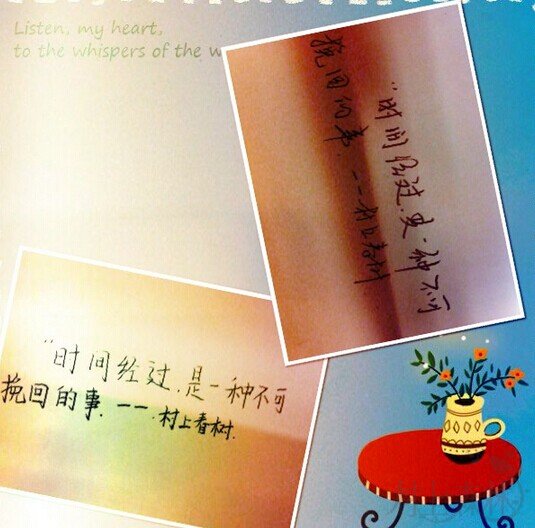 Listen, my heart,
to the whispers of the w
“时间经过.是一种不可
挽回的事.——村上春树
“时间经过.是一种不可
挽回的事.——.村上春树.